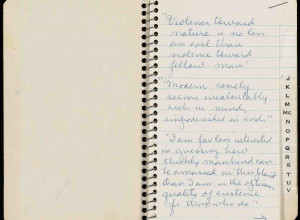 "Violence toward
nature is no less
an evil than
violence toward
fellow-man"
"Modern society
seems incalculably
rich in mind,
impoverished in soul."
"I am far less interested
in guessing how
thickly mankind can
be amassed on this planet
than I am in the optimum
quality of existence
for those who do"
J
K
L
M
Mc
N
O
P
Q
R
S
T
U
V